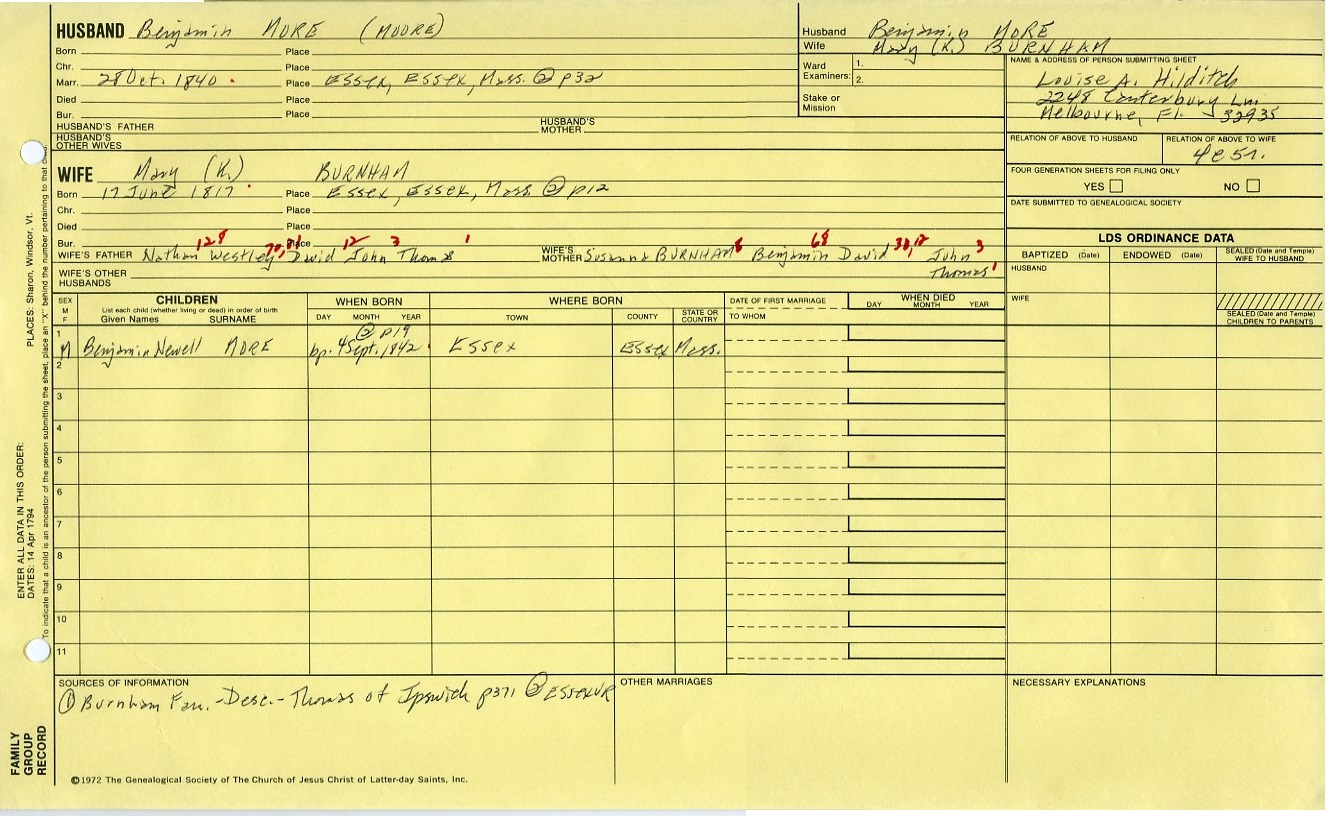 HUSBAND Benjamin MORE (MOORE)
Born Place
Chr. Place
Marr. 28 Oct. 1840 Place Essex, Essex, Mass. @ p32
Died Place
Bur. Place
HUSBAND'S FATHER HUSBAND'S MOTHER
HUSBAND'S OTHER WIVES
Husband Benjamin MORE
Wife Mary (K.) BURNHAM
Ward Examiners: 1.
2.
Stake or Mission
NAME & ADDRESS OF PERSON SUBMITTING SHEET
Louise A. Hilditch
2248 Canterbury Ln
Melbourne, Fl. 32935
RELATION OF ABOVE TO HUSBAND RELATION OF ABOVE TO WIFE
FOUR GENERATION SHEETS FOR FILING ONLY
YES NO
DATE SUBMITTED TO GENEALOGICAL SOCIETY
WIFE Mary (K.) BURNHAM
Born 17 June 1817 Place Essex, Essex, Mass. ② p12
Chr. Place
Died Place
Bur. Place
128 12 3 1
WIFE'S FATHER Nathan Westley, David John Thomas
68 3
WIFE'S MOTHER Susanna BURNHAM Benjamin David John
Thomas 1
WIFE'S OTHER HUSBANDS
LDS ORDINANCE DATA
BAPTIZED (Date) ENDOWED (Date) SEALED (Date and Temple) WIFE TO HUSBAND
HUSBAND
WIFE
SEALED (Date and Temple) CHILDREN TO PARENTS
SEX M F
CHILDREN
List each child (whether living or dead) in order of birth
Given Names SURNAME
WHEN BORN
DAY MONTH YEAR
WHERE BORN
TOWN COUNTY STATE OR COUNTRY
DATE OF FIRST MARRIAGE
TO WHOM
WHEN DIED
DAY MONTH YEAR
1 ② p19
M Benjamin Newell MORE bp. 4 Sept. 1842 Essex Essex Mass.
2
3
4
5
6
7
8
9
10
11
SOURCES OF INFORMATION
① Burnham Fam. - Desc. - Thomas of Ipswich p371 ② ESSEXVR
OTHER MARRIAGES
NECESSARY EXPLANATIONS
©1972 The Genealogical Society of The Church of Jesus Christ of Latter-day Saints, Inc.
FAMILY GROUP RECORD
ENTER ALL DATA IN THIS ORDER:
DATES: 14 Apr 1794 PLACES: Sharon, Windsor, Vt.
To indicate that a child is an ancestor of the person submitting the sheet, place an "X" behind the number pertaining to that